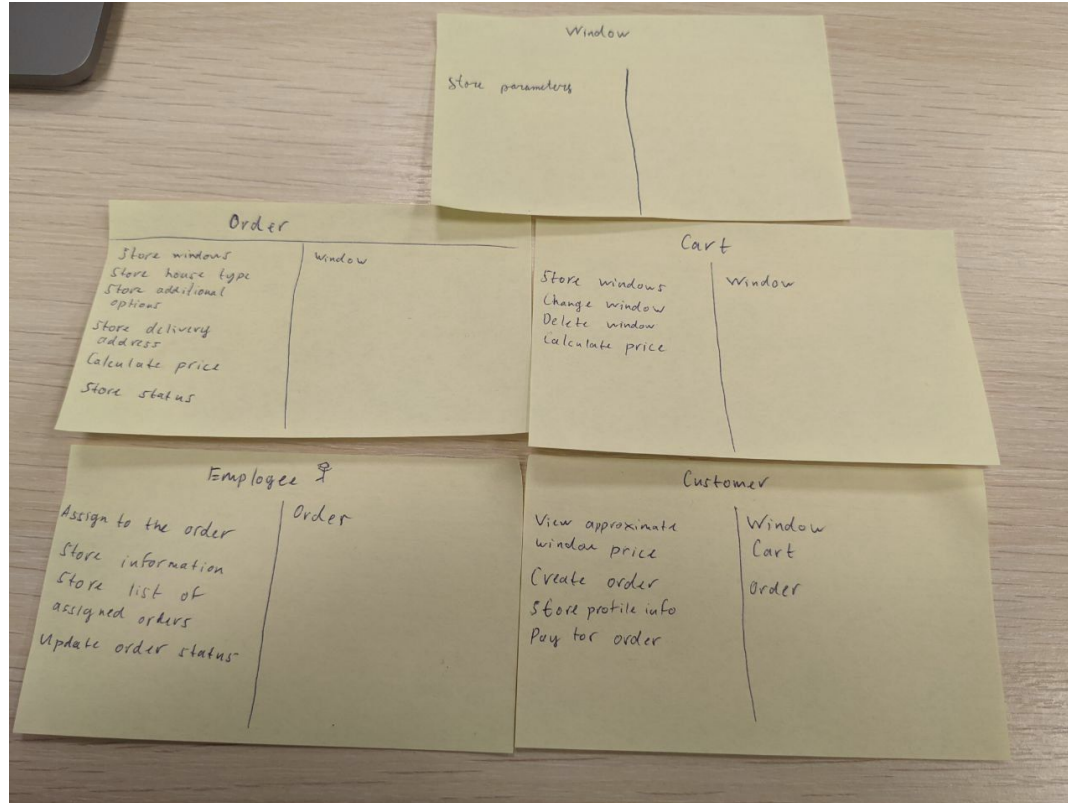 Window
Store parameters
Order
Store windows
Store house type
Store additional
options
Store delivery
address
Calculate price
Store status
Window
Cart
Store windows
Change window
Delete window
Calculate price
Window
Employee
Assign to the order
Store information
Store list of
assigned orders
Update order status
Order
Customer
View approximate
window price
Create order
Store profile info
Pay for order
Window
Cart
Order